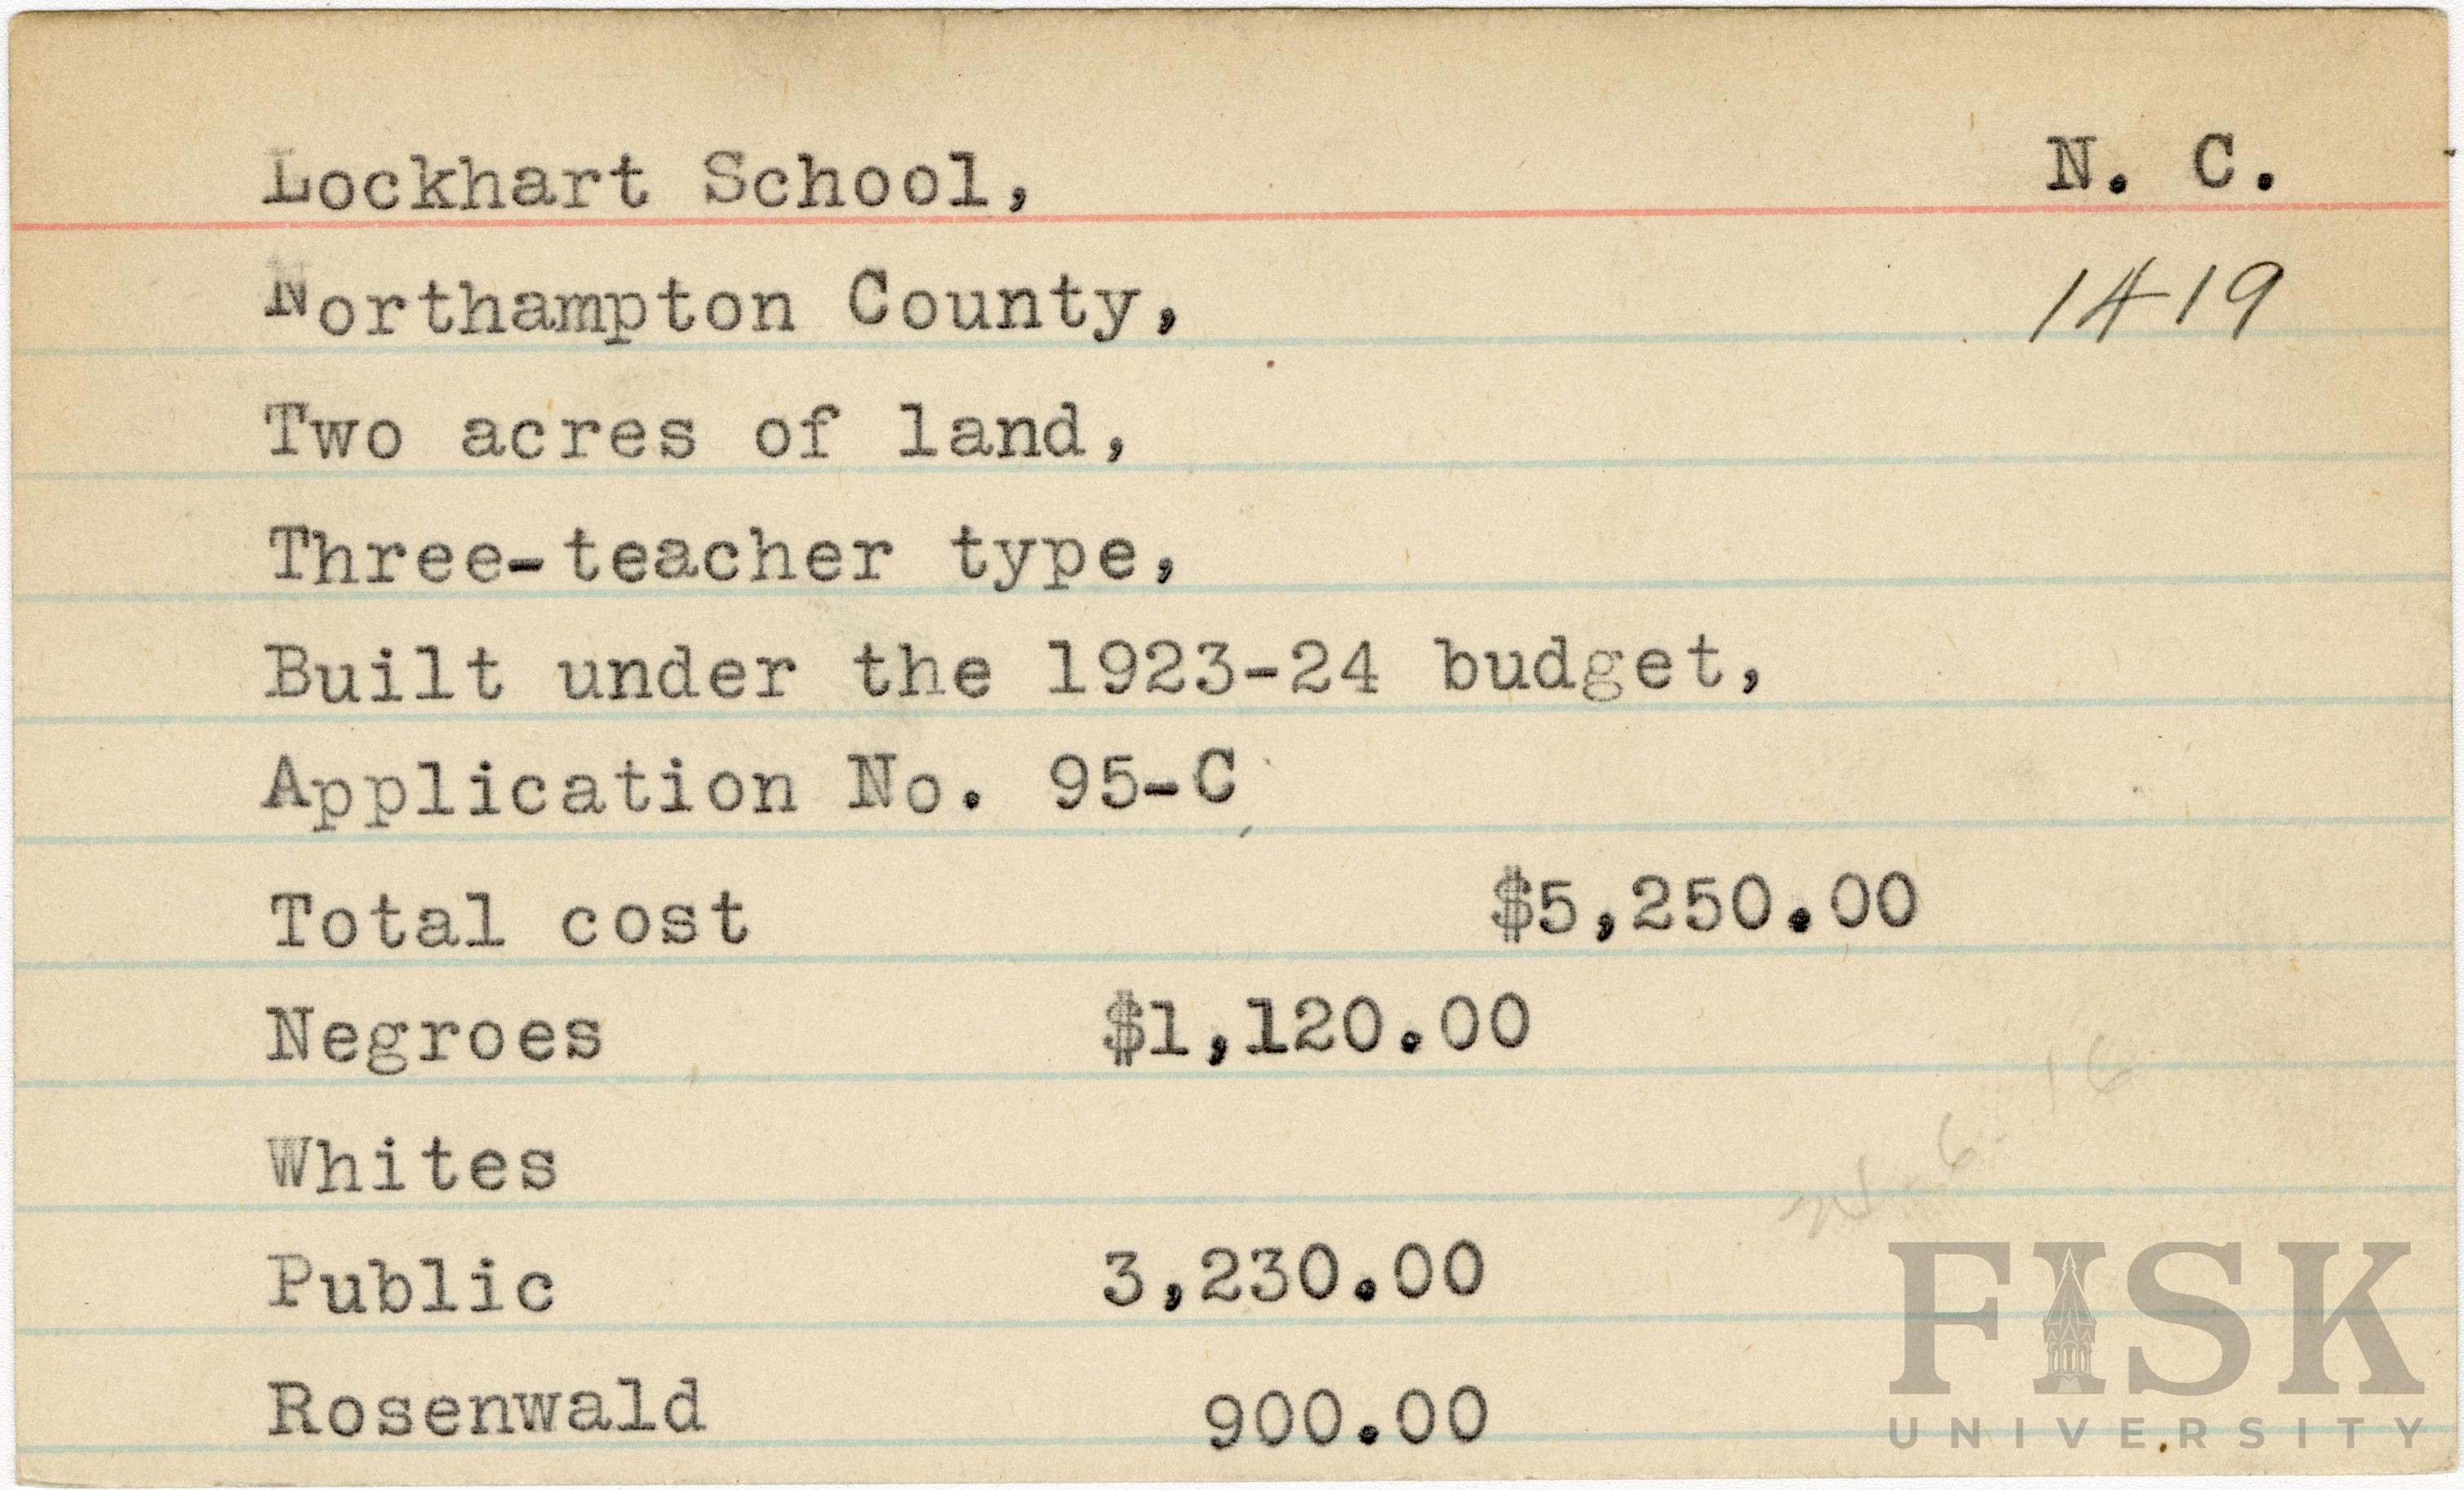 Lockhart School, N. C.
Northampton County, 1419
Two acres of land,
Three-teacher type,
Built under the 1923-24 budget,
Application No. 95-C
Total cost $5,250.00
Negroes $1,120.00
Whites
Public 3,230.00
Rosenwald 900.00
FISK
UNIVERSITY